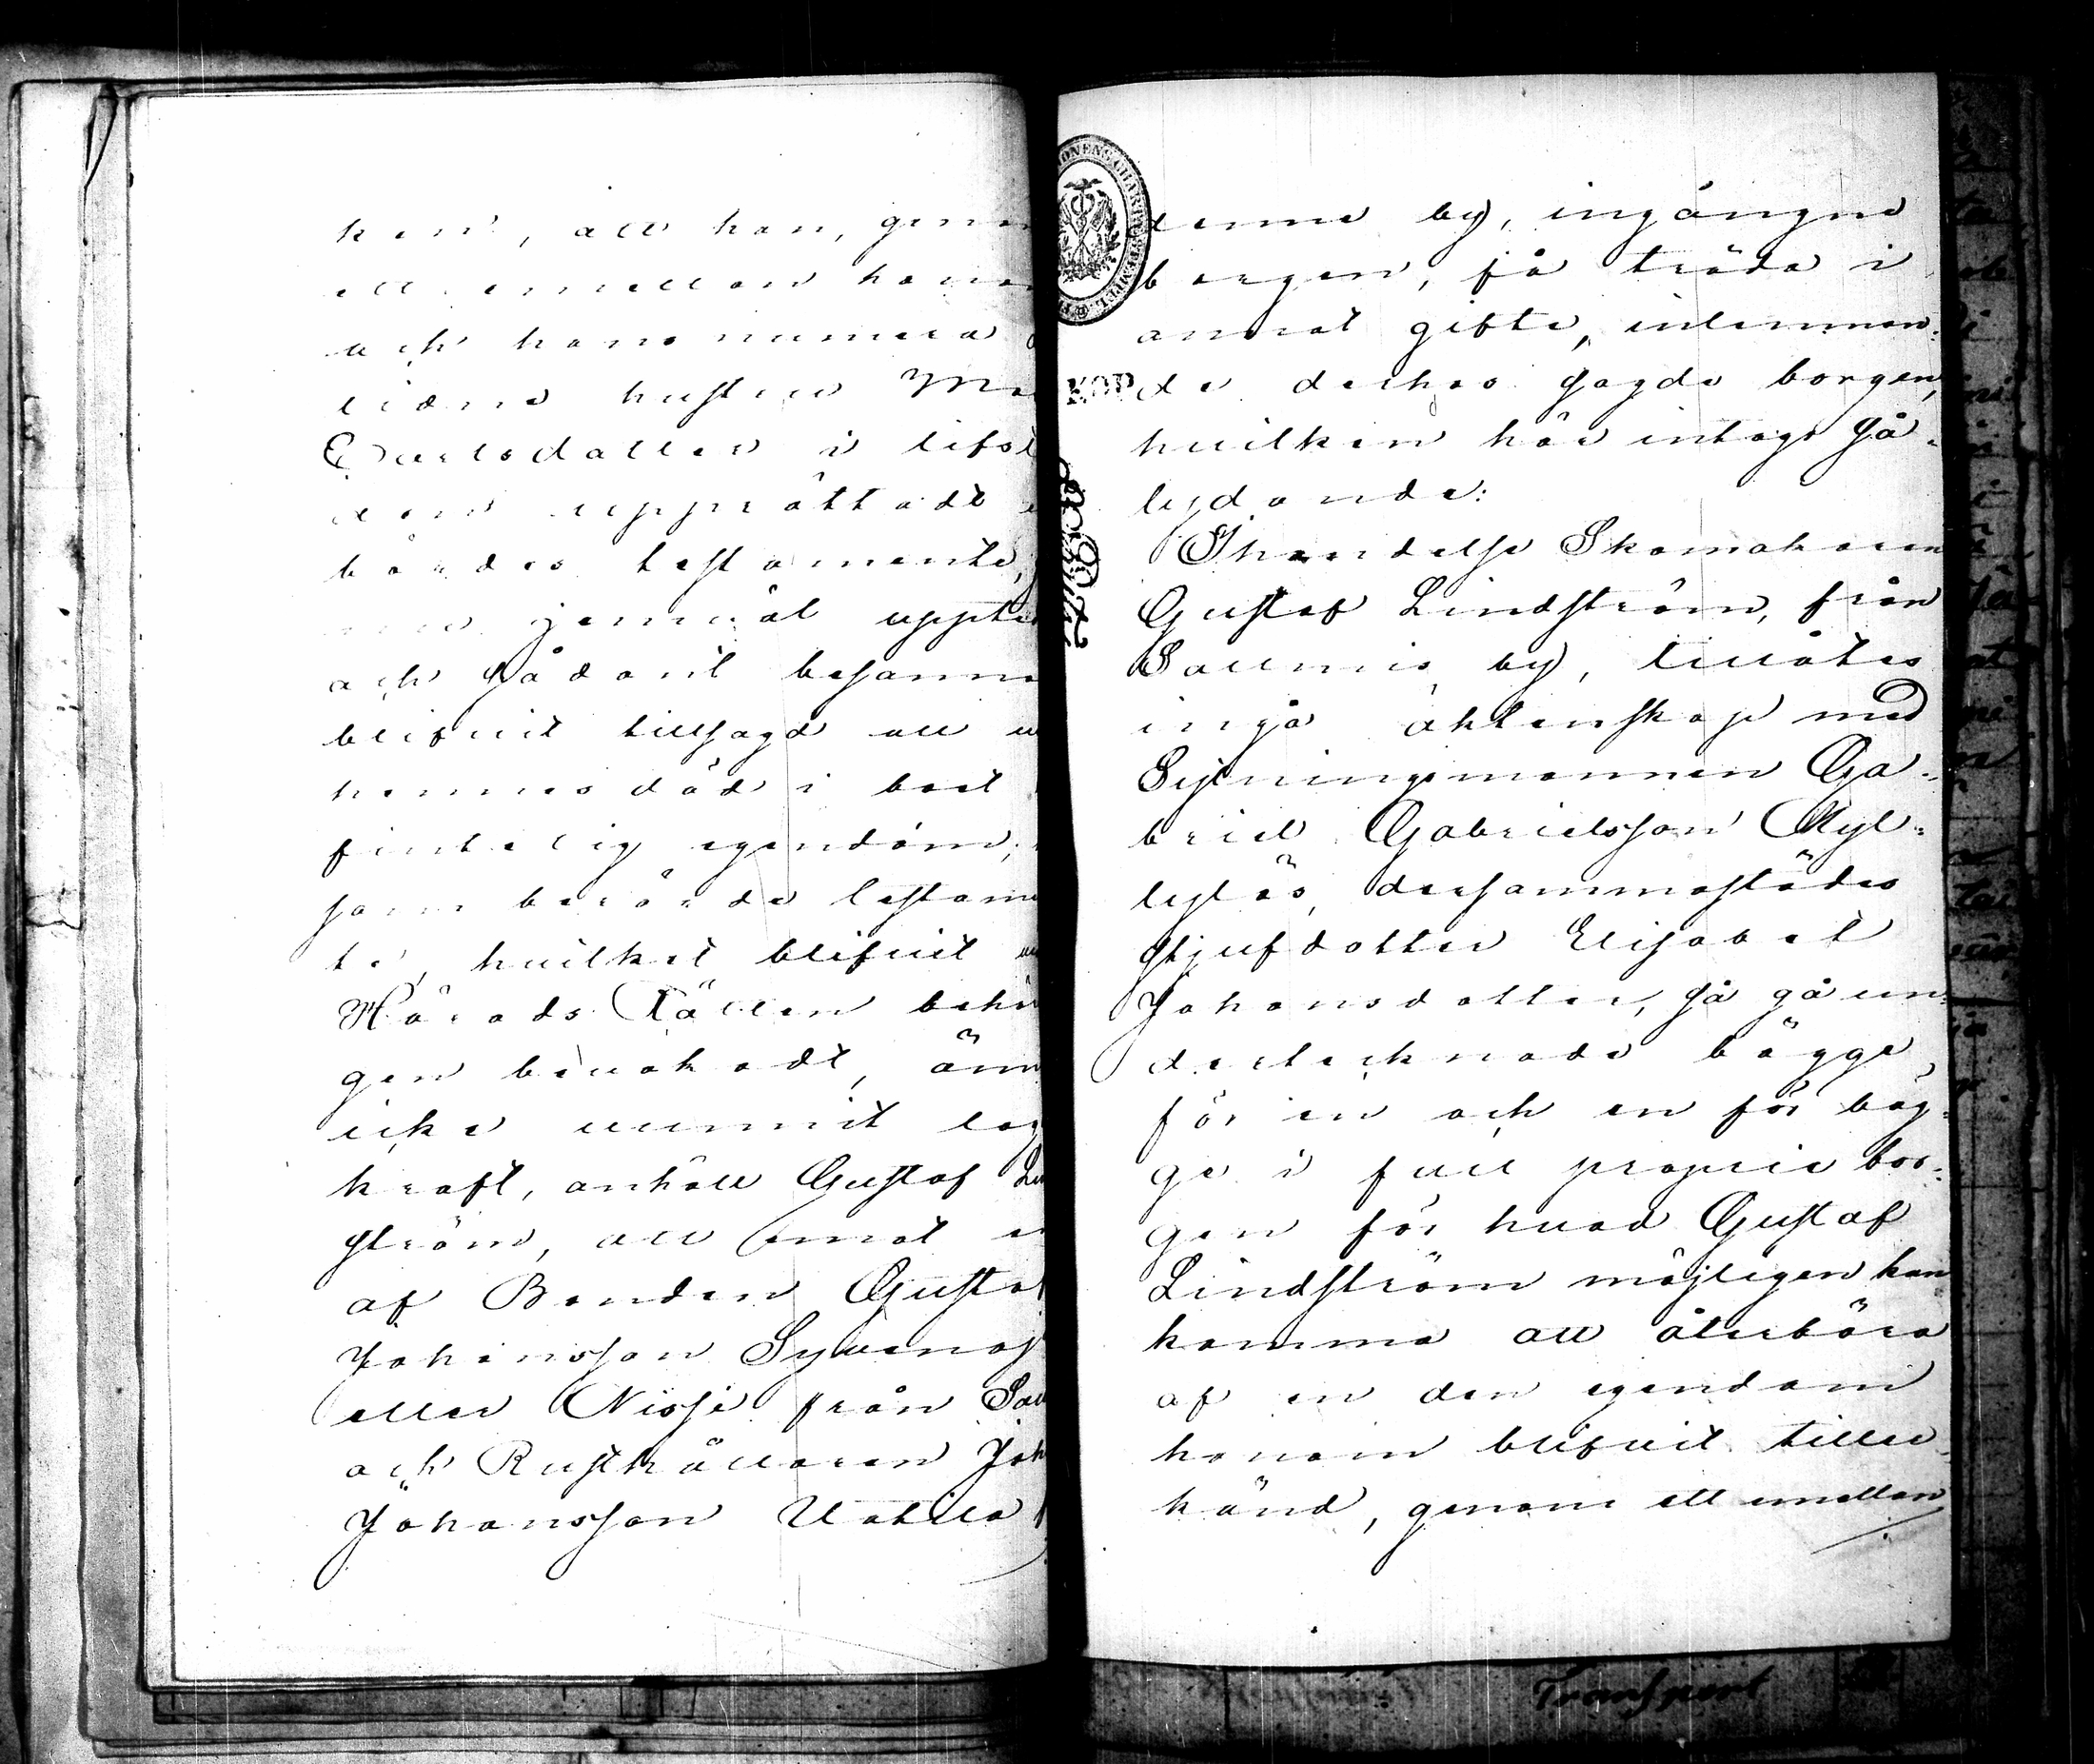 ken, att han, genom
ett emellan honom
och hans numera
lidne hustru Ma
Carlsdotter i lifst
den upprättadt
bördes testamente,
jemväl uppte
och sådant besanna
blifvit tillsagd att
hennes död i boet
fintelig egendom;
som berörde testamen
te, hvilket blifvit
Härads Rätten behö
gen bevakadt, änn
icke vunnit lag
kraft, anhöll Gustaf Lin
ström, att emot
af Bonden Gustaf
Johansson Syvenoj
eller Nissi från Sau
och Rusthållaren Joh
Johansson Uotila
denne by, ingångne
borgen, få träda i
annat gifte, inlemnan-
de derhos sagde borgen,
hvilken här intogs så-
lydande:
Ihändelse Skomakaren
Gustaf Lindström, från
Sallmis by, tillåtes
ingå äktenskap med
Sytningsmannen Ga-
briel Gabrielsson Kyl-
lylös, dersammastädes
stjufdotter Elisabet
Johansdotter, så gå un-
dertecknade bägge,
för en och en för bäg-
ge i full proprie bor-
gen för hvad Gustaf
Lindström möjligen kan
komma att återbära
af en den egendom
honom blifvit tiller-
känd, genom ett emellan
KOP
Transport